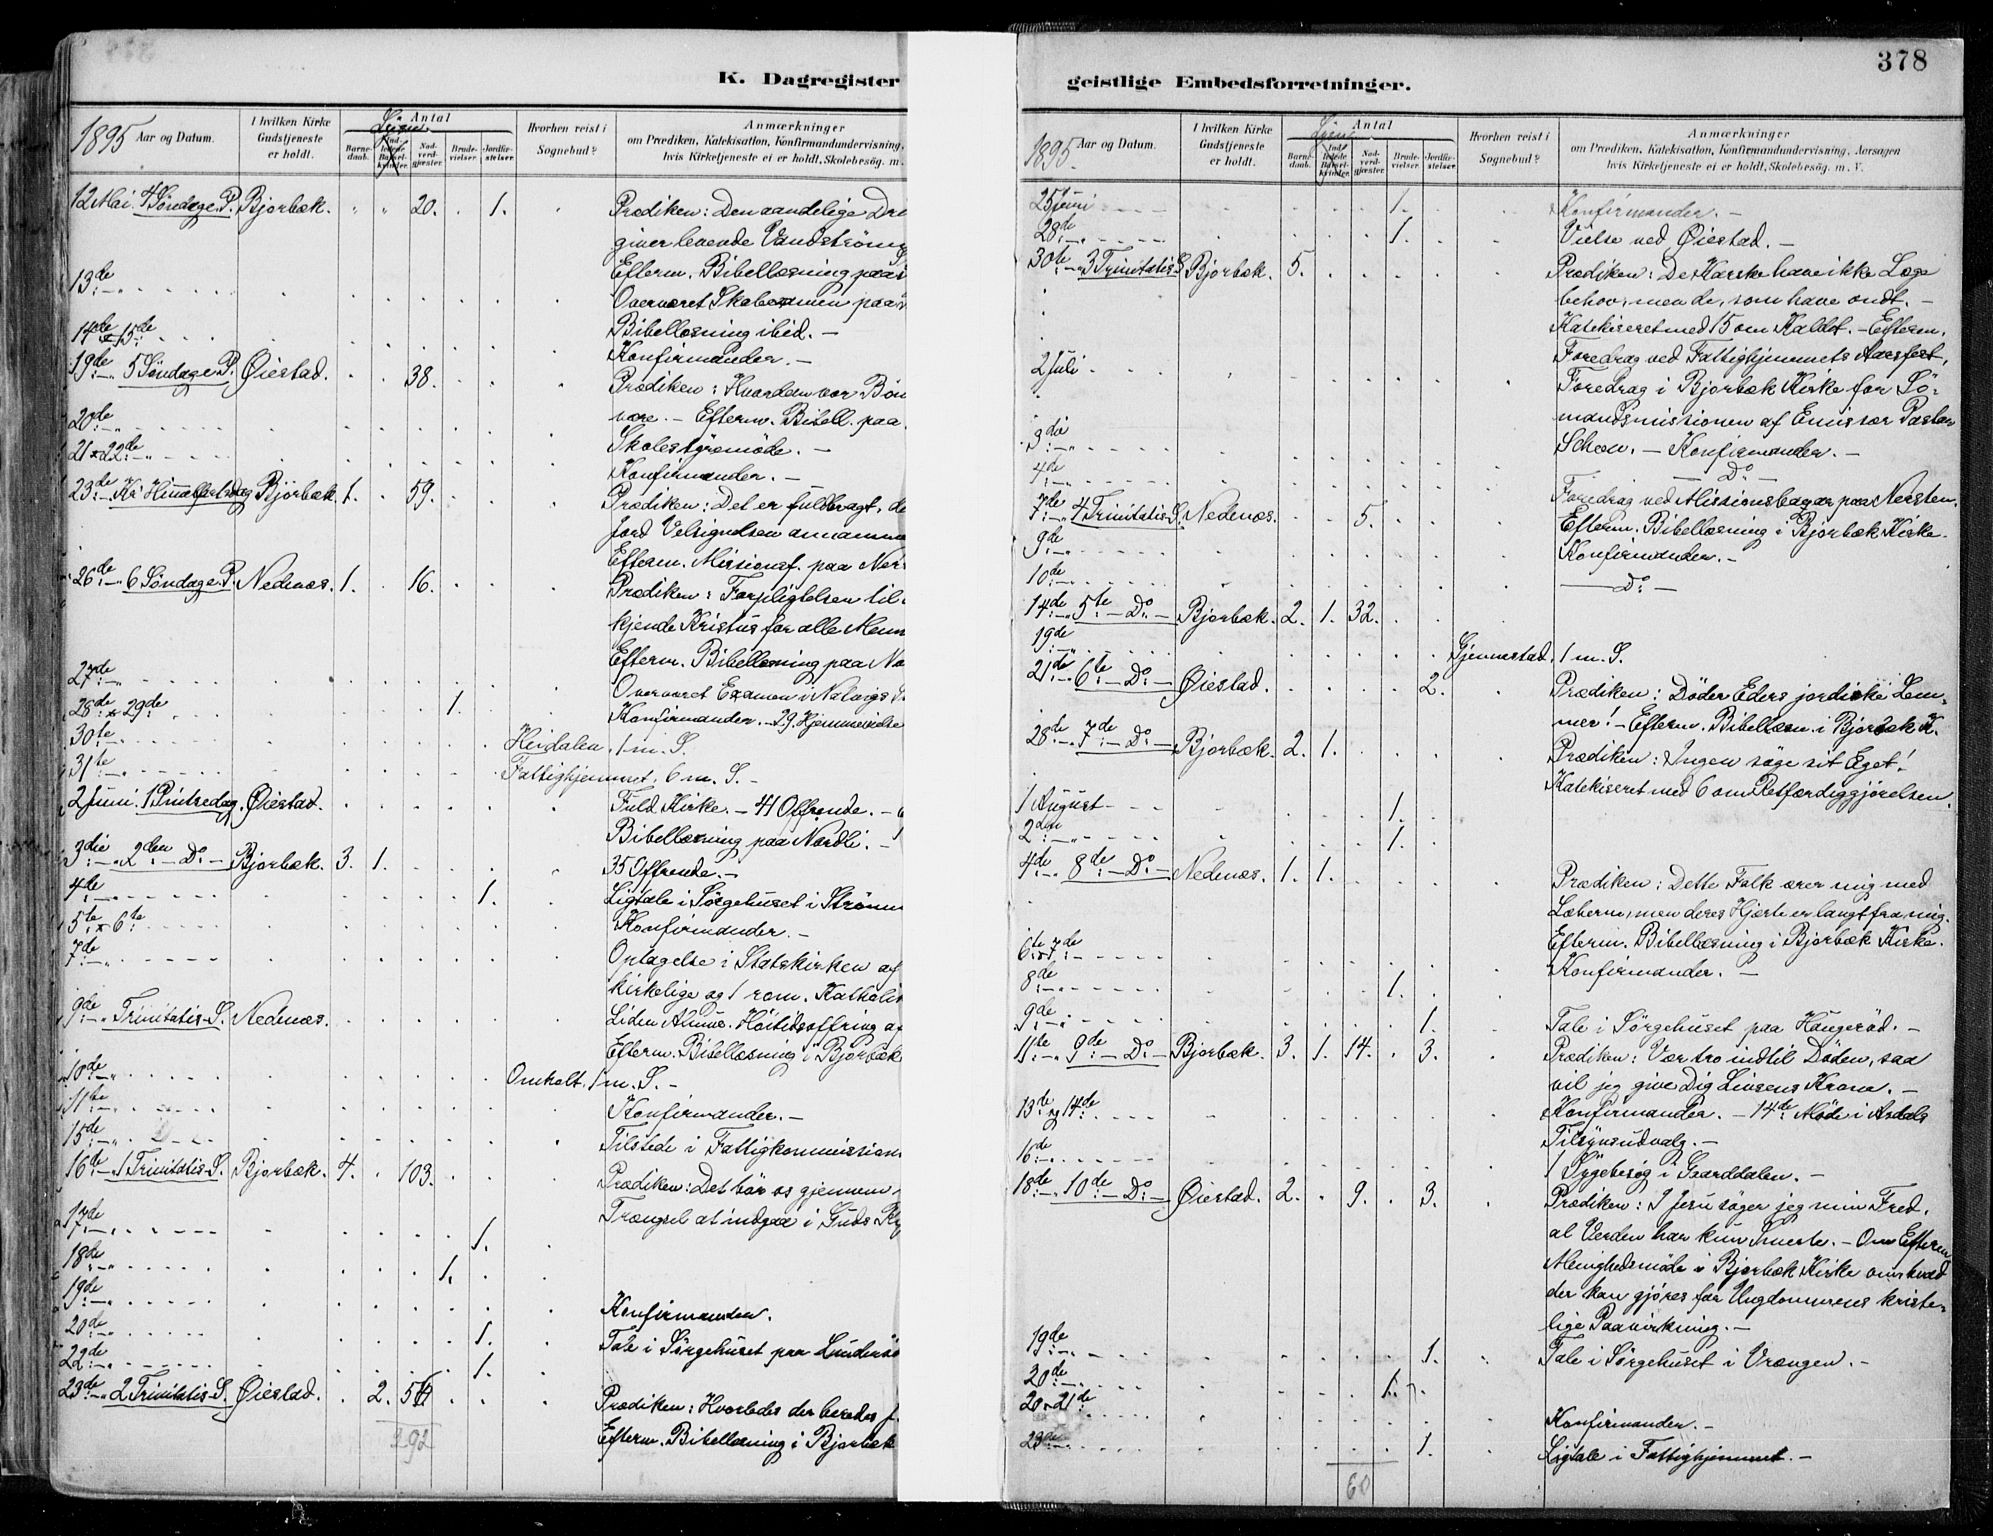 378
K. Dagregister
1895 Aar og Datum.
I hvilken Kirke Gudstjeneste er holdt.
Antal
Barnedaab.
Indledede Barselkvinder.
Nadverdgjæster
Brudevielser.
Jordfæstelser.
Hvorhen reist i Sognebud?
Anmærkninger
om Prædiken, Katekisation, Konfirmandundervisning,
hvis Kirketjeneste ei er holdt, Skolebesøg. m.
12 Mai. 4 Søndag e. P. Bjorbæk. " " 20. . 1. " Prædiken: Den aandelige
giver levende Vandstrømme
13de Efterm. Bibellæsning paa
Overværet Skoleexamen paa
14de & 15de Bibellæsning ibid. –
Konfirmander. –
19de 5 Søndag e. P. Øiestad. . . 38. Prædiken: Hvordan vor Bøn
være. – Efterm. Bibell. paa
20de Skolestyremøde. –
21 & 22de Konfirmander. –
23de Kr. Himmelfartsdag Bjorbæk 1. . 59. Prædiken: Det er fuldbragt,
Jord Velsignelsen annamme
Efterm. Missionsf. paa Ner
26de 6 Søndag e. P. Nedenæs. 1. . 16. Prædiken: Forpligtelsen til
kjende Kristus for alle Menn
Efterm. Bibellæsning paa No
27de Overværet Examen i
28de & 29de 1. Konfirmander. – 29. Hjemmevielse
30te Heidalen. 1 m. S.
31te Fattighjemmet. 6 m. S. –
2 Juni. 1 Pintsedag. Øiestad. Fuld Kirke. – 41 Offrende. –
Bibellæsning paa Nordli. –
3die 2den Do. – Bjorbæk. 3. 1. 35 Offrende. –
4de 1. Ligtale i Sørgehuset i Strømm
5te & 6te Konfirmander. –
7de Optagelse i Statskirken af
kirkelige og 1 rom. Katholik
9de Trinitatis S. Nedenæs. Liden Almue. Høitidsoffring af
Efterm. Bibellæsning i Bjorbæk
10de Omholt. 1 m. S. –
11te Konfirmander. –
15de Tilstede i Fattigkommission
16de 1 Trinitatis S. Bjorbæk. 4. . 103. Prædiken: Det bør os gjennem
Trængsel at indgaa i Guds
17de 1.
18de 1.
19de Konfirmander.
20de 1. Tale i Sørgehuset paa
22de 1.
23de 2 Trinitatis S. Øiestad. . 2. 54 Prædiken: Hvorledes der beredes
Efterm. Bibellæsning i Bjorbæk
292
geistlige Embedsforretninger.
1895. Aar og Datum.
I hvilken Kirke Gudstjeneste er holdt.
Antal
Barnedaab.
Indledede Barselkvinder.
Nadverdgjæster
Brudevielser.
Jordfæstelser.
Hvorhen reist i Sognebud?
Anmærkninger
om Prædiken, Katekisation, Konfirmandundervisning, Aarsagen
hvis Kirketjeneste ei er holdt, Skolebesøg. m. V.
25 Juni 1. Konfirmander. –
28de 1. Vielse ved Øiestad. –
30te 3 Trinitatis S. Bjorbæk. 5. Prædiken: De Karske have ikke Læge
behov, men de, som have ondt. –
Katekiseret med 15 om Kaldet. – Efterm.
Foredrag ved Fattighjemmets Aarsfest.
2 Juli Foredrag i Bjorbæk Kirke for Sø-
mandsmissionen af Emissær Pastor
3die Scheen. – Konfirmander. –
4de – Do –
Foredrag ved Missionsbazar paa Nersten.
7de 4 Trinitatis S. Nedenæs. . . 5. Efterm. Bibellæsning i Bjorbæk Kirke.
9de Konfirmander. –
10de – Do. –
14de 5te Do. – Bjorbæk. 2. 1. 32.
19de Gjennestad. 1 m. S.
21de 6te Do. – Øiestad. 2. Prædiken: Døder Eders jordiske Lem-
mer! – Efterm. Bibellæsn. i Bjorbæk K.
28de 7de Do. – Bjorbæk. 2. 1. Prædiken: Ingen søge sit Eget!
Katekiseret med 6 om Retfærdiggjørelsen.
1 August 1.
2den 1.
4de 8de Do. – Nedenæs. 1. 1. Prædiken: Dette Folk ærer mig med
Læberne, men deres Hjerte er langt fra mig.
Efterm. Bibellæsning i Bjorbæk Kirke.
6te & 7de Konfirmander. –
8de 1.
9de 1. Tale i Sørgehuset paa Haugerød. –
11te 9de Do. – Bjorbæk. 3. 1. 14. . 3. Prædiken: Vær tro indtil Døden, saa
vil jeg give Dig Livsens Krone. –
13de og 14de Konfirmander. – 14de Møde i Asdals
Tilsynsudvalg. –
16de 1 Sygebesøg i Gaarddalen. –
18de 10de Do. – Øiestad. 2. " 9. . 3. Prædiken: I Jesu søger jeg min Fred,
al Verden har kun Smerte. – Efterm
Menighedsmøde i Bjorbæk Kirke om hvad
der kan gjøres for Ungdommens kriste-
lige Paavirkning. –
19de 1. Tale i Sørgehuset i Vrængen. –
20de 1.
20 & 21de Konfirmander. –
23de 1. Ligtale i Fattighjemmet. –
60